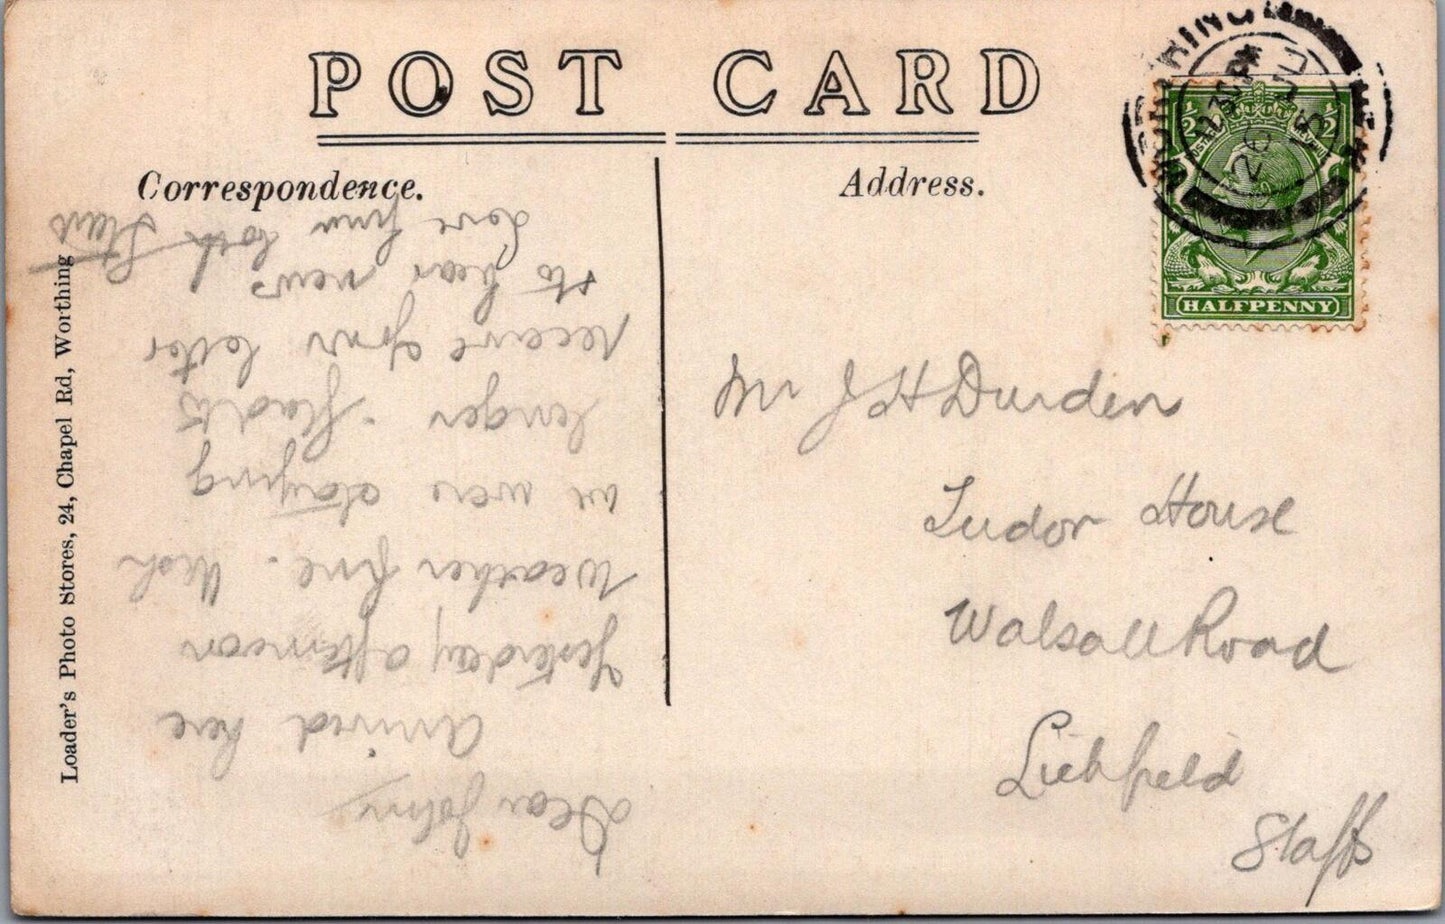 POST CARD
Correspondence.
Address.
Dear John
arrived here
yesterday afternoon
weather fine. Wish
we were staying
longer. Glad to
receive your letter
to hear news
Love from both
Loader's Photo Stores, 24, Chapel Rd, Worthing
HALFPENNY
Mr J H Durden
Tudor House
Walsall Road
Lichfield
Staffs